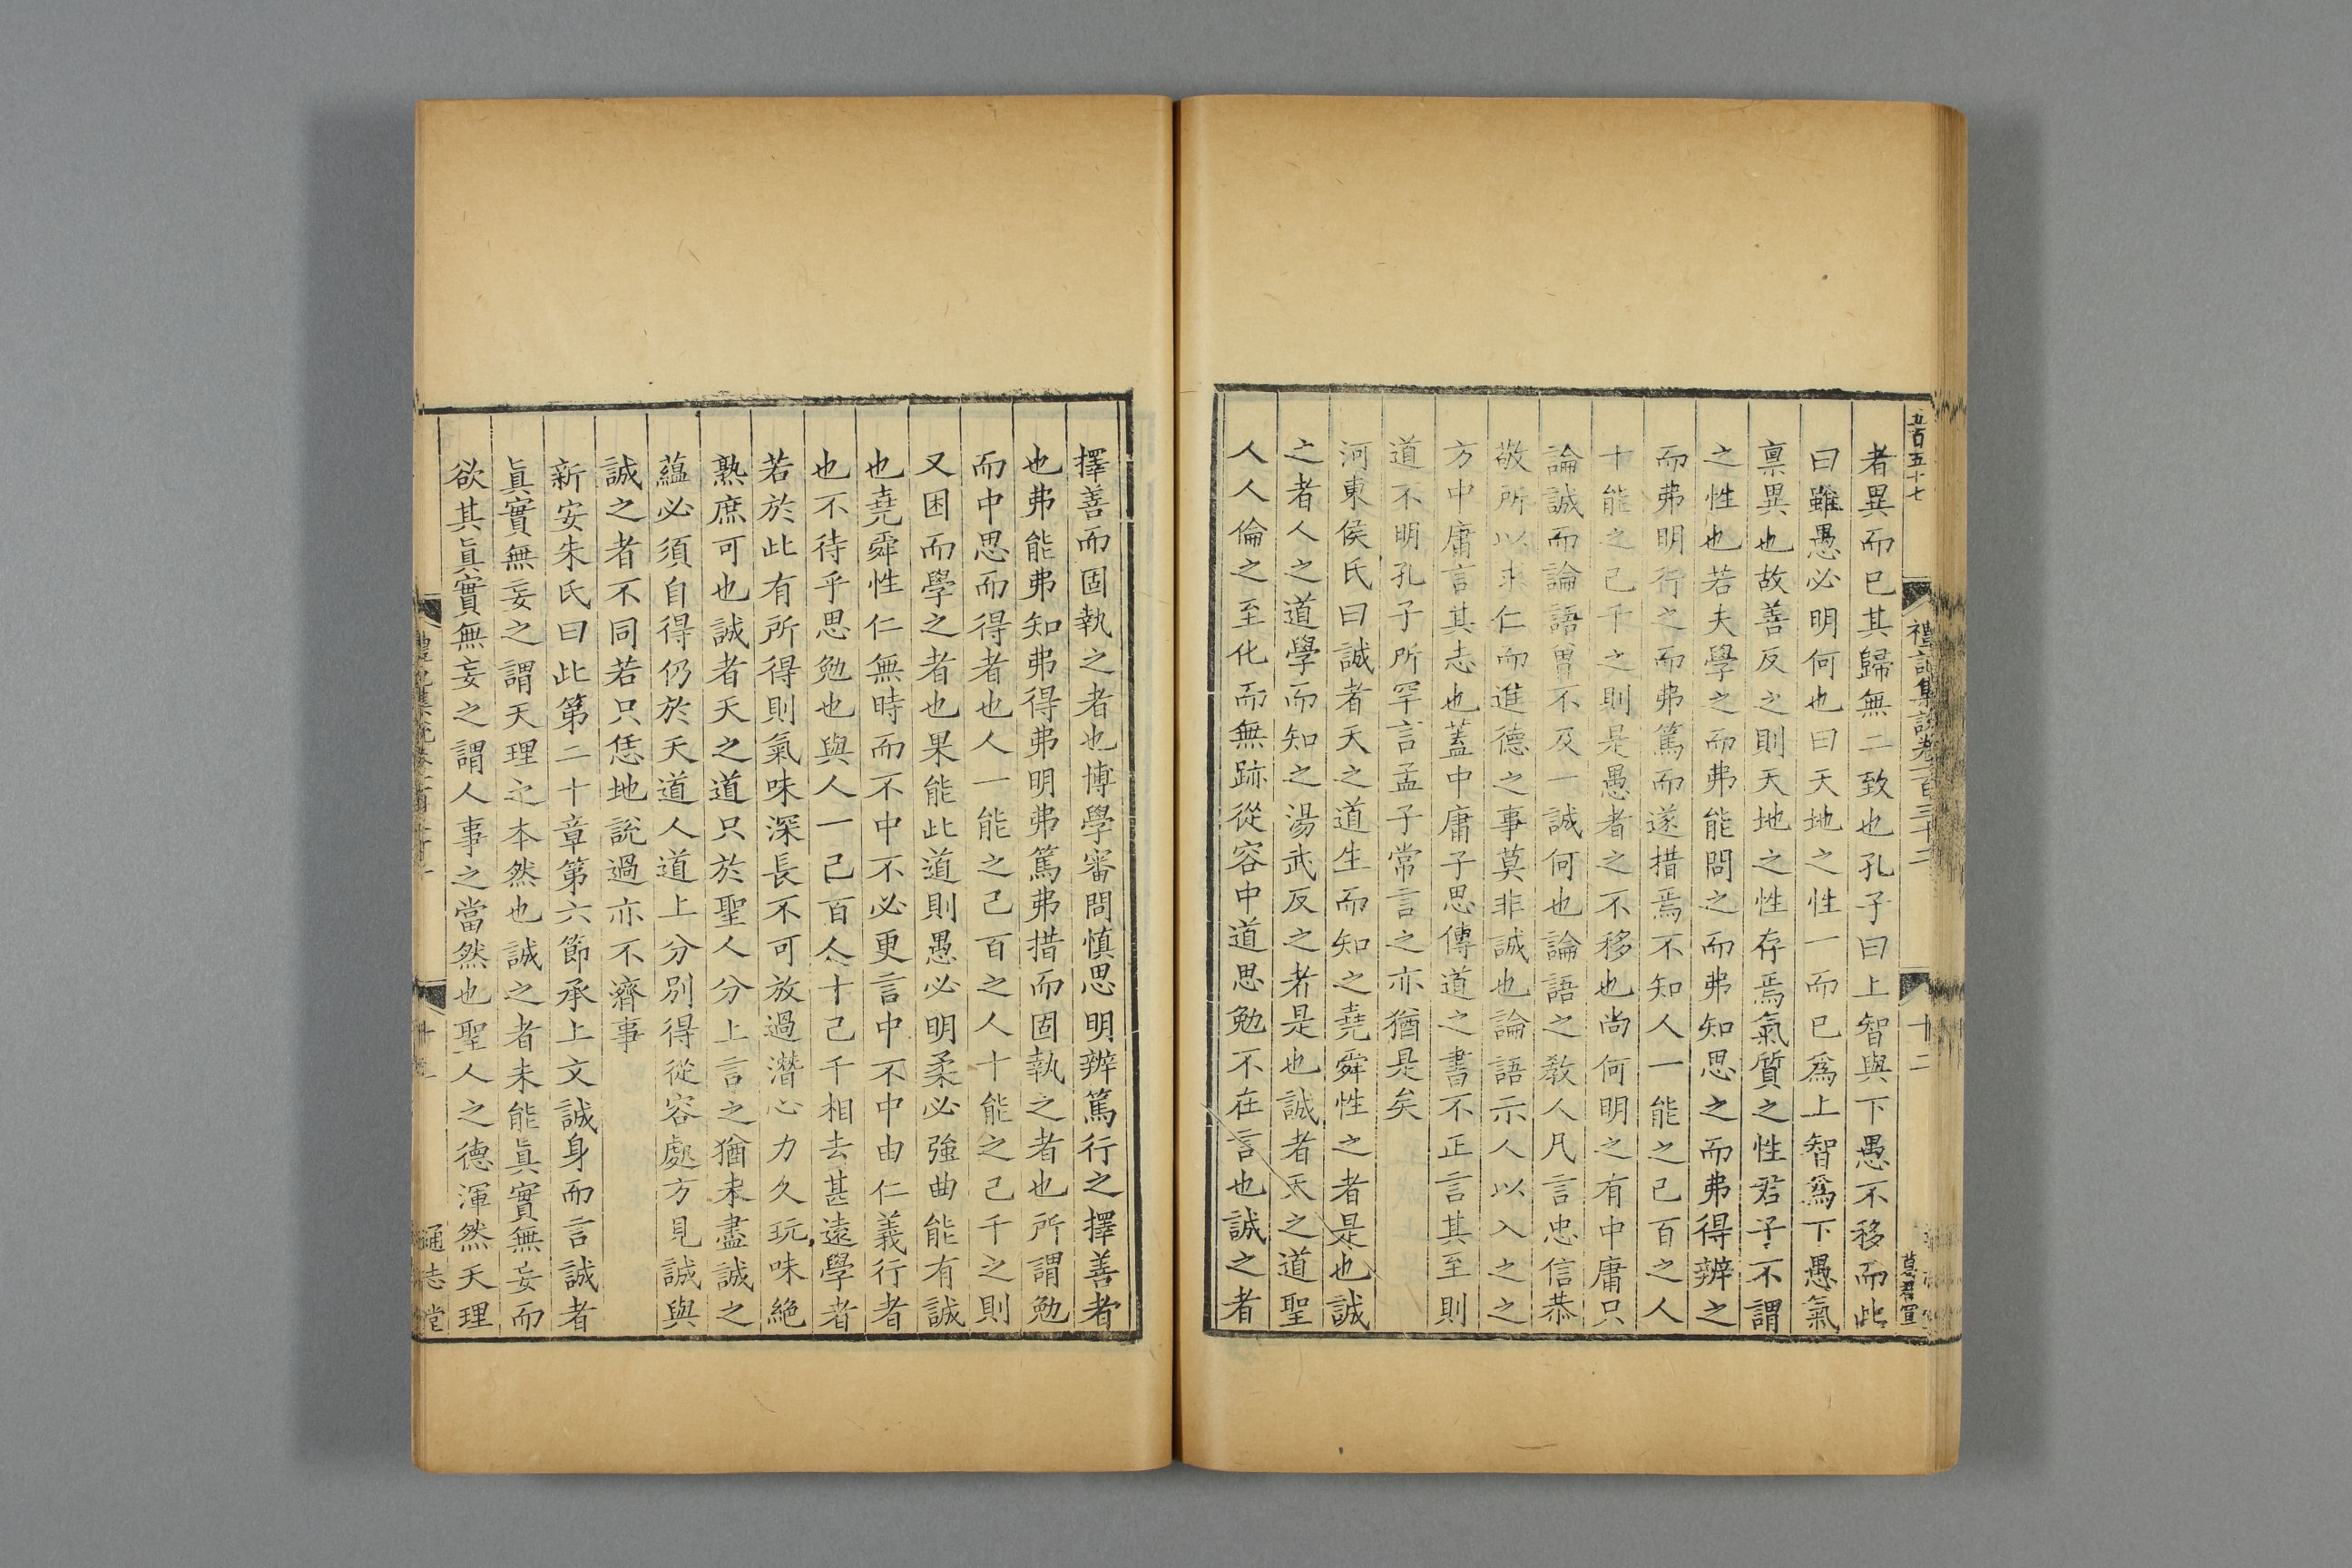 五百五十七
禮記集說卷一百三十二
十二
慕君宣
者異而已其歸無二致也孔子曰上智與下愚不移而此
曰雖愚必明何也曰天地之性一而已爲上智爲下愚氣
禀異也故善反之則天地之性存焉氣質之性君子不謂
之性也若夫學之而弗能問之而弗知思之而弗得辨之
而弗明行之而弗篤而遂措焉不知人一能之己百之人
十能之己千之則是愚者之不移也尚何明之有中庸只
論誠而論語曾不及一誠何也論語之敎人凡言忠信恭
敬所以求仁而進德之事莫非誠也論語示人以入之之
方中庸言其志也蓋中庸子思傳道之書不正言其至則
道不明孔子所罕言孟子常言之亦猶是矣
河東侯氏曰誠者天之道生而知之堯舜性之者是也誠
之者人之道學而知之湯武反之者是也誠者天之道聖
人人倫之至化而無跡從容中道思勉不在言也誠之者
擇善而固執之者也博學審問慎思明辨篤行之擇善者
也弗能弗知弗得弗明弗篤弗措而固執之者也所謂勉
而中思而得者也人一能之己百之人十能之己千之則
又困而學之者也果能此道則愚必明柔必強曲能有誠
也堯舜性仁無時而不中不必更言中不中由仁義行者
也不待乎思勉也與人一己百人十己千相去甚遠學者
若於此有所得則氣味深長不可放過潛心力久玩味絶
熟庶可也誠者天之道只於聖人分上言之猶未盡誠之
蘊必須自得仍於天道人道上分別得從容處方見誠與
誠之者不同若只恁地說過亦不濟事
新安朱氏曰此第二十章第六節承上文誠身而言誠者
眞實無妄之謂天理之本然也誠之者未能眞實無妄而
欲其眞實無妄之謂人事之當然也聖人之德渾然天理
通志堂